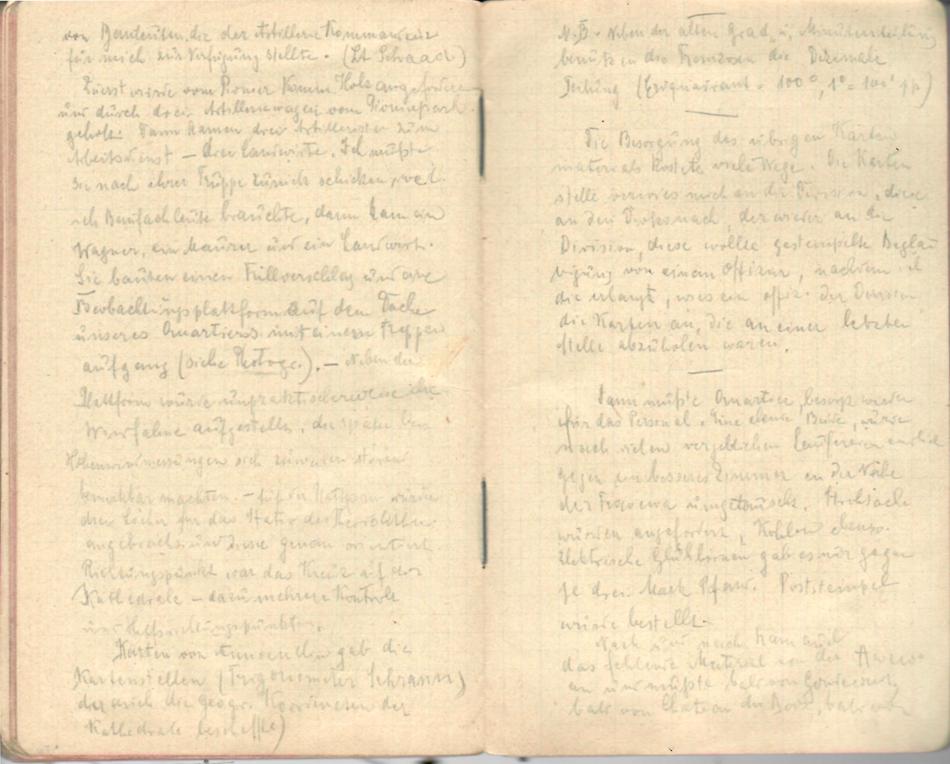 von Bauleuten, die der Artillerie Kommandeur
für mich zur Verfügung stellte. (Lt Schaach)
Zuerst wurde vom Pionier Komm. Holz angefordert
und durch drei Artilleriewagen vom Pionierpark
geholt. Dann kamen drei Artilleristen zum
Arbeitsdienst – drei Landwirte. Ich mußte
sie nach ihrer Truppe zurück schicken, weil
ich Baufachleute brauchte, dann kam ein
Wagner, ein Maurer und ein Landwirt.
Sie bauten einen Füllverschlag und eine
Beobachtungsplattform auf dem Dache
unseres Quartiers mit einem Treppen
aufgang (siehe Photogr.). – Neben der
Plattform wurde unpraktischerweise eine
aufgestellt, der später bei
Höhenwindmessungen sich zuweilen störend
bemerkbar machten. – Auf der wurden
drei Löcher für das Stativ des Theodoliten
angebracht und diese genau orientiert.
Richtungspunkt war das Kreuz auf der
Kathedrale – dazu mehrere Kontroll
und Hilfsrichtungspunkte.
Karten von gab die
Kartenstellen (Trigonometer Schramm)
der auch die geogr. Koordinaten der
Kathedrale beschaffte)
N.B. Neben der alten Grad u. Minutenteilung
benützen die Franzosen die Dezimale
Teilung ( = 100°, 1° = 100' pp)
Die Besorgung des übrigen Karten
materials kostete viele Wege. Die Karten
stelle verwies mich an die Division, diese
an den, der wieder an die
Division, diese wollte gestempelte Beglau
bigung von einem Offizier, nachdem ich
die erlangt, wies ein Offiz. der Division
die Karten an, die an einer letzten
Stelle abzuholen waren.
Dann mußte Quartier besorgt werden
für das Personal. Eine elende Bude, wurde
nach vielen vergeblichen Laufereien endlich
gegen ein besseres Zimmer in der Nähe
der umgetauscht. Strohsäcke
wurden angefordert, Kohlen ebenso.
Elektrische Glühbirnen gab es nur gegen
je drei Mark Pfand. Poststempel
wurde bestellt.
Nach und nach kam auch
das fehlende Material von der Armee
an und mußte bald von
bald von Chateau du Bois, bald von